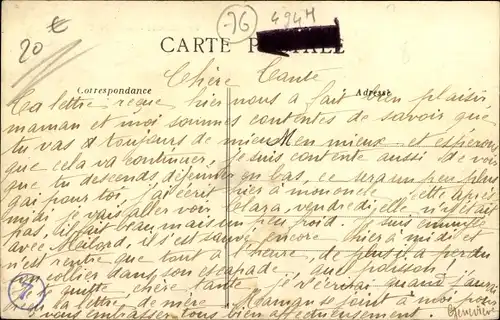 20 €
76
494H
CARTE POSTALE
Correspondance
Adresse
Chère Tante
Ta lettre reçue hier nous a fait bien plaisir
maman et moi sommes contentes de savoir que
tu vas toujours de mieux en mieux et espérons
que cela va continuer, je suis contente aussi de voir
que tu descends déjeuner en bas, ce sera un peu plus
gai pour toi, j'ai écrit hier à mononcle, cette après
midi je vais aller voir Clara, vendredi elle n'y était
pas, il fait beau, mais un peu froid. Je suis ennuyée
avec Mailord, il s'est sauvé encore hier à midi et
n'est rentré que tout à l'heure, de plus il a perdu
son collier dans son escapade, quel poisson
Je te quitte, chère tante, j'écrirai quand j'aurai
reçu la lettre de mère. Maman se joint à moi pour
vous embrasser tous bien affectueusement.
Geneviève